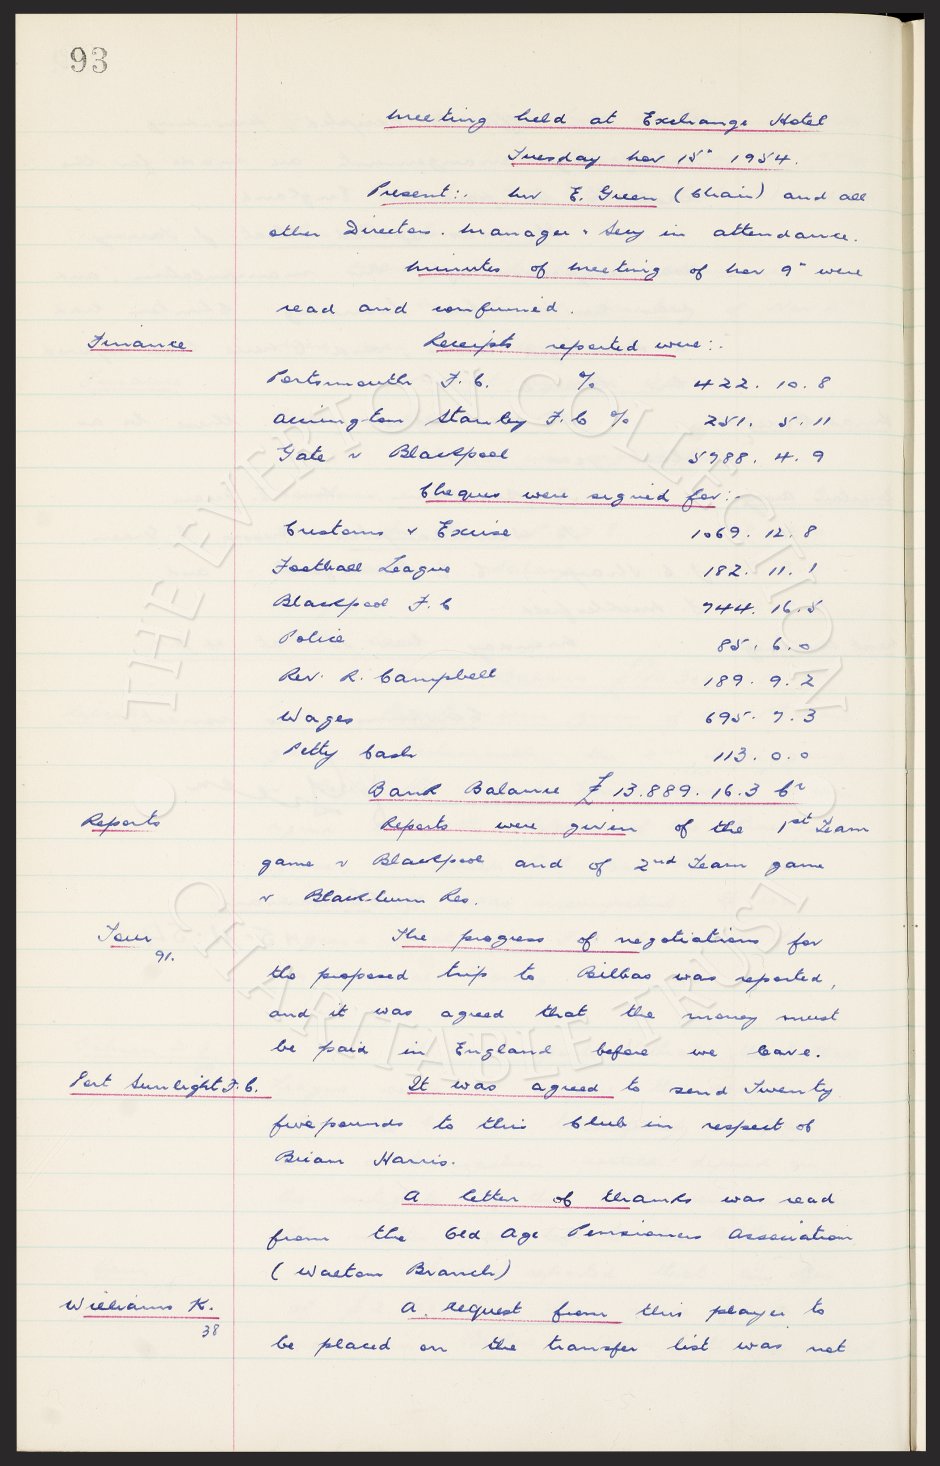 93
Meeting held at Exchange Hotel
Tuesday Nov 15" 1954.
Present:- Mr E. Green (Chair) and all
other Directors. Manager & Secy in attendance.
Minutes of Meeting of Nov 9" were
read and confirmed.
Finance
Receipts reported were:-
Portsmouth F.C. % 422. 10. 8
Accrington Stanley F.C % 251. 5. 11
Gate v Blackpool 5788. 4. 9
Cheques were signed for:-
Customs & Excise 1069. 12. 8
Football League 182. 11. 1
Blackpool F.C 744. 16. 5
Police 85. 6. 0
Rev. R. Campbell 189. 9. 2
Wages 695. 7. 3
Petty Cash 113. 0. 0
Bank Balance £13.889. 16. 3 Cr
Reports
Reports were given of the 1st Team
game v Blackpool and of 2nd Team game
v Blackburn Res.
Tour
91.
The progress of negotiations for
the proposed trip to Bilbao was reported,
and it was agreed that the money must
be paid in England before we leave.
Port Sunlight F.C.
It was agreed to send Twenty
five pounds to this Club in respect of
Brian Harris.
A letter of thanks was read
from the Old Age Pensioners Association
(Walton Branch)
Williams K.
38
A request from this player to
be placed on the transfer list was not
THE EVERTON COLLECTION
CHARITABLE TRUST